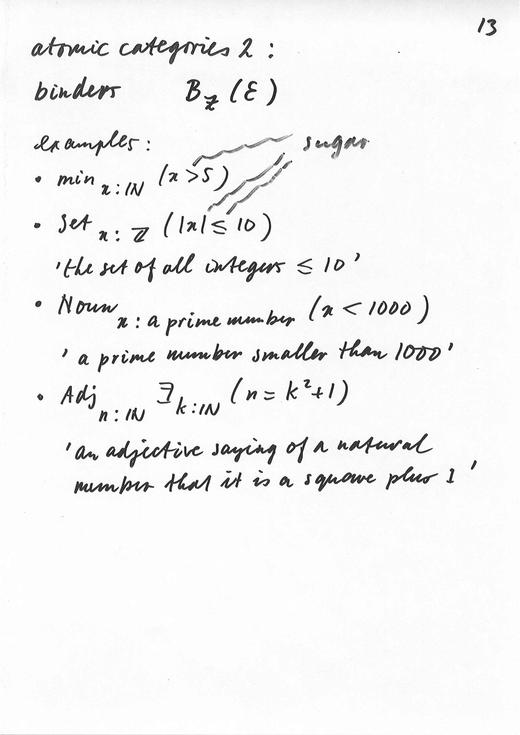 13
atomic categories 2 :
binders B_Z (E)
examples : sugar
• min_{x:ℕ} (x > 5)
• Set_{x:ℤ} (|x| ≤ 10)
'the set of all integers ≤ 10'
• Noun_{x: a prime number} (x < 1000)
'a prime number smaller than 1000'
• Adj_{n:ℕ} ∃_{k:ℕ} (n = k²+1)
'an adjective saying of a natural
number that it is a square plus 1'